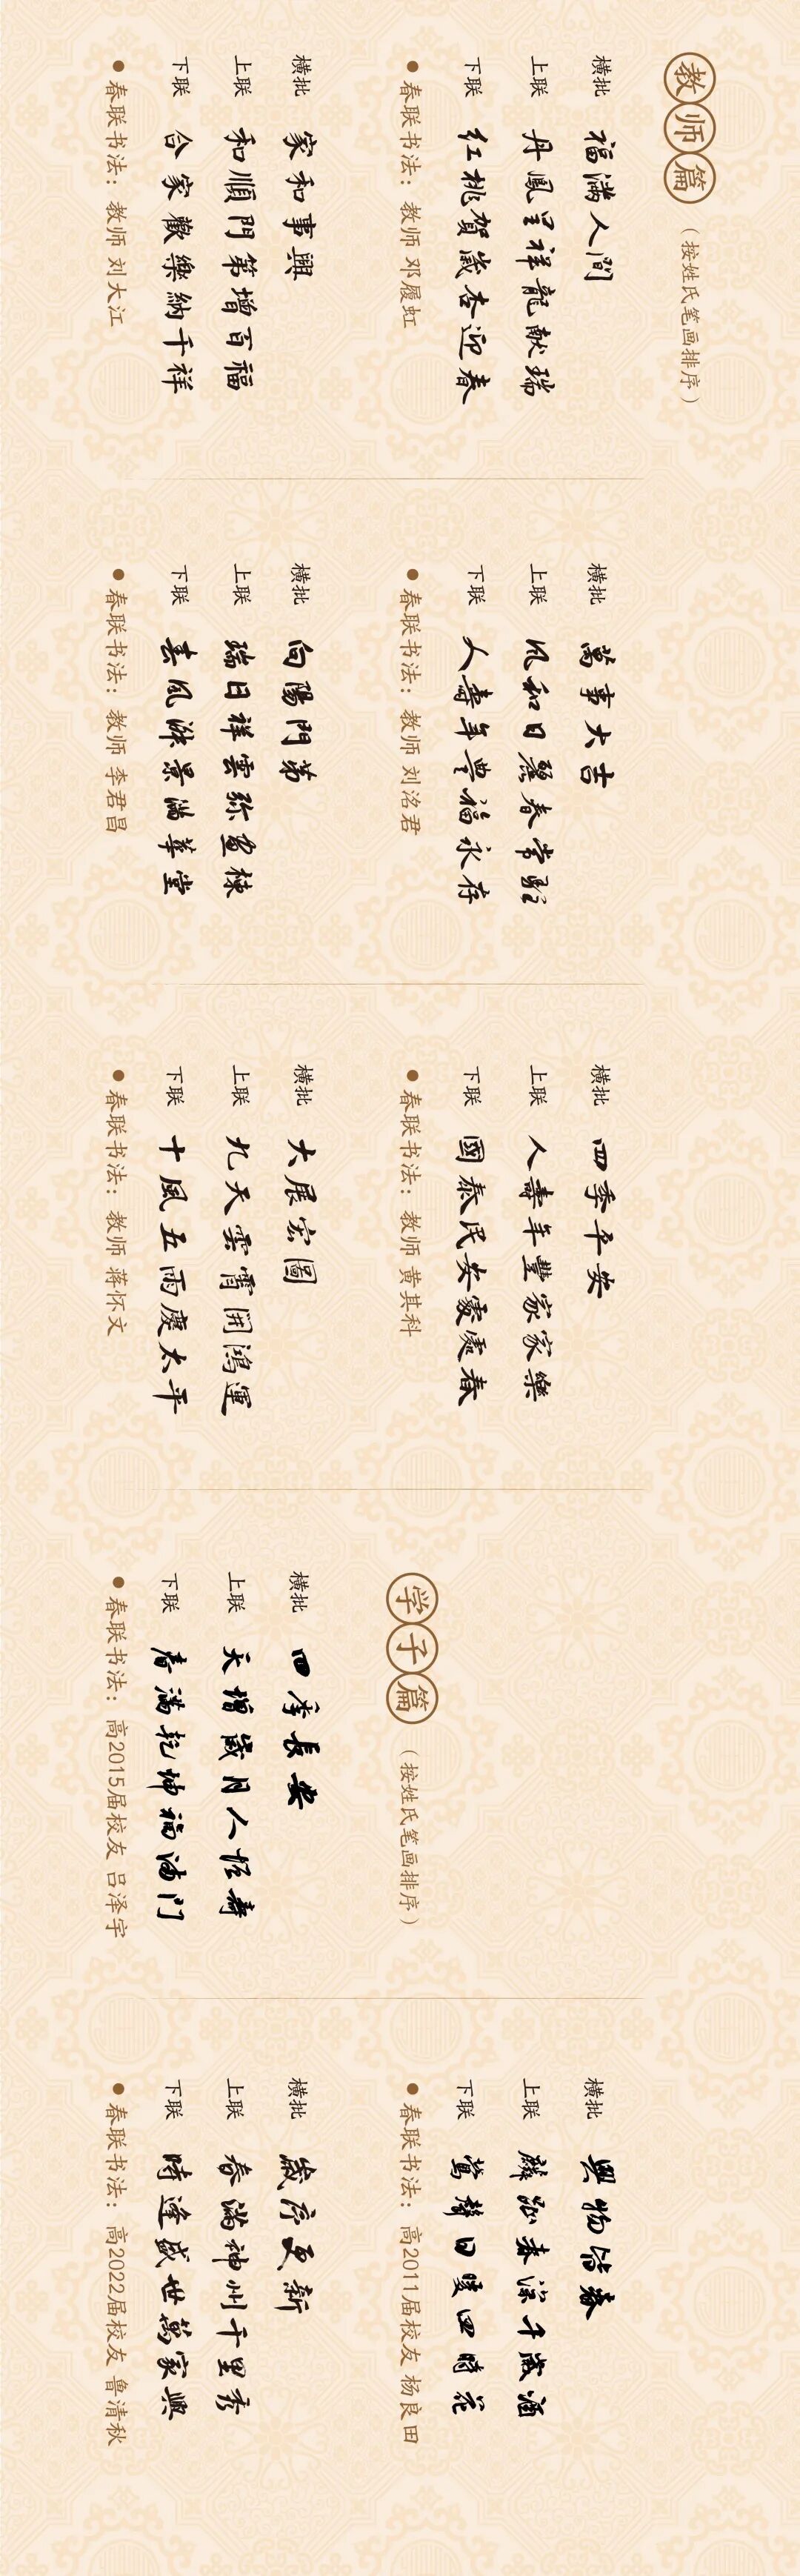 教师篇 （按姓氏笔画排序）
横批 福满人間
上联 丹鳳呈祥龍献瑞
下联 红桃賀歲杏迎春
●春联书法：教师 邓履虹
横批 家和事興
上联 和順門第增百福
下联 合家歡樂納千祥
●春联书法：教师 刘大江
横批 萬事大吉
上联 风和日麗春常駐
下联 人壽年豐福永存
●春联书法：教师 刘洺君
横批 向陽門第
上联 瑞日祥雲弥画棟
下联 春风淑景满華堂
●春联书法：教师 李君昌
横批 四季平安
上联 人壽年豐家家樂
下联 國泰民安處處春
●春联书法：教师 黄其科
横批 大展宏圖
上联 九天雲霄開鴻運
下联 十風五雨慶太平
●春联书法：教师 蒋怀文
学子篇 （按姓氏笔画排序）
横批 四季長安
上联 天增歲月人恒壽
下联 春满乾坤福满门
●春联书法：高2015届校友 吕泽宇
横批 與物皆春
上联 麟趾春深千歲酒
下联 鶯聲日暖四時花
●春联书法：高2011届校友 杨良田
横批 歲序更新
上联 春满神州千里秀
下联 時逢盛世萬家興
●春联书法：高2022届校友 鲁清秋